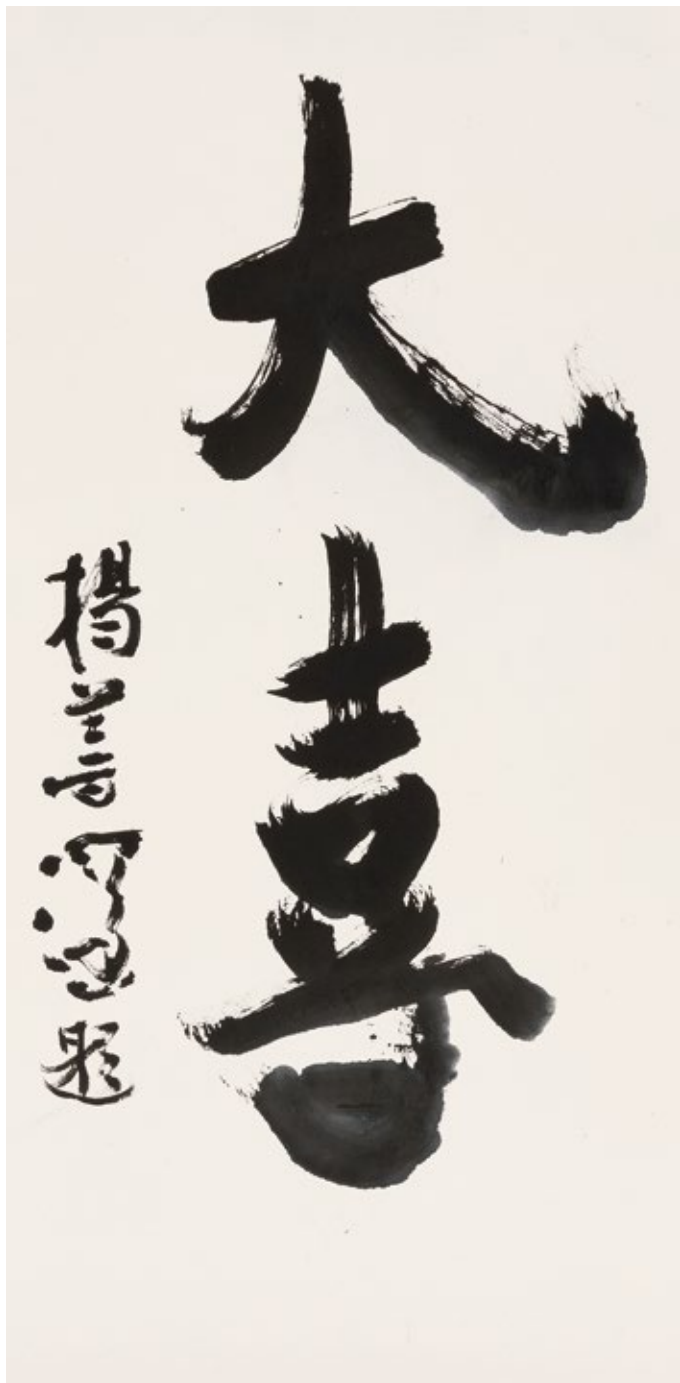 大喜
楊善深題